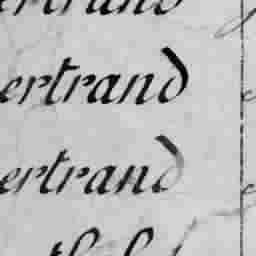 ertrand
ertrand
ertrand